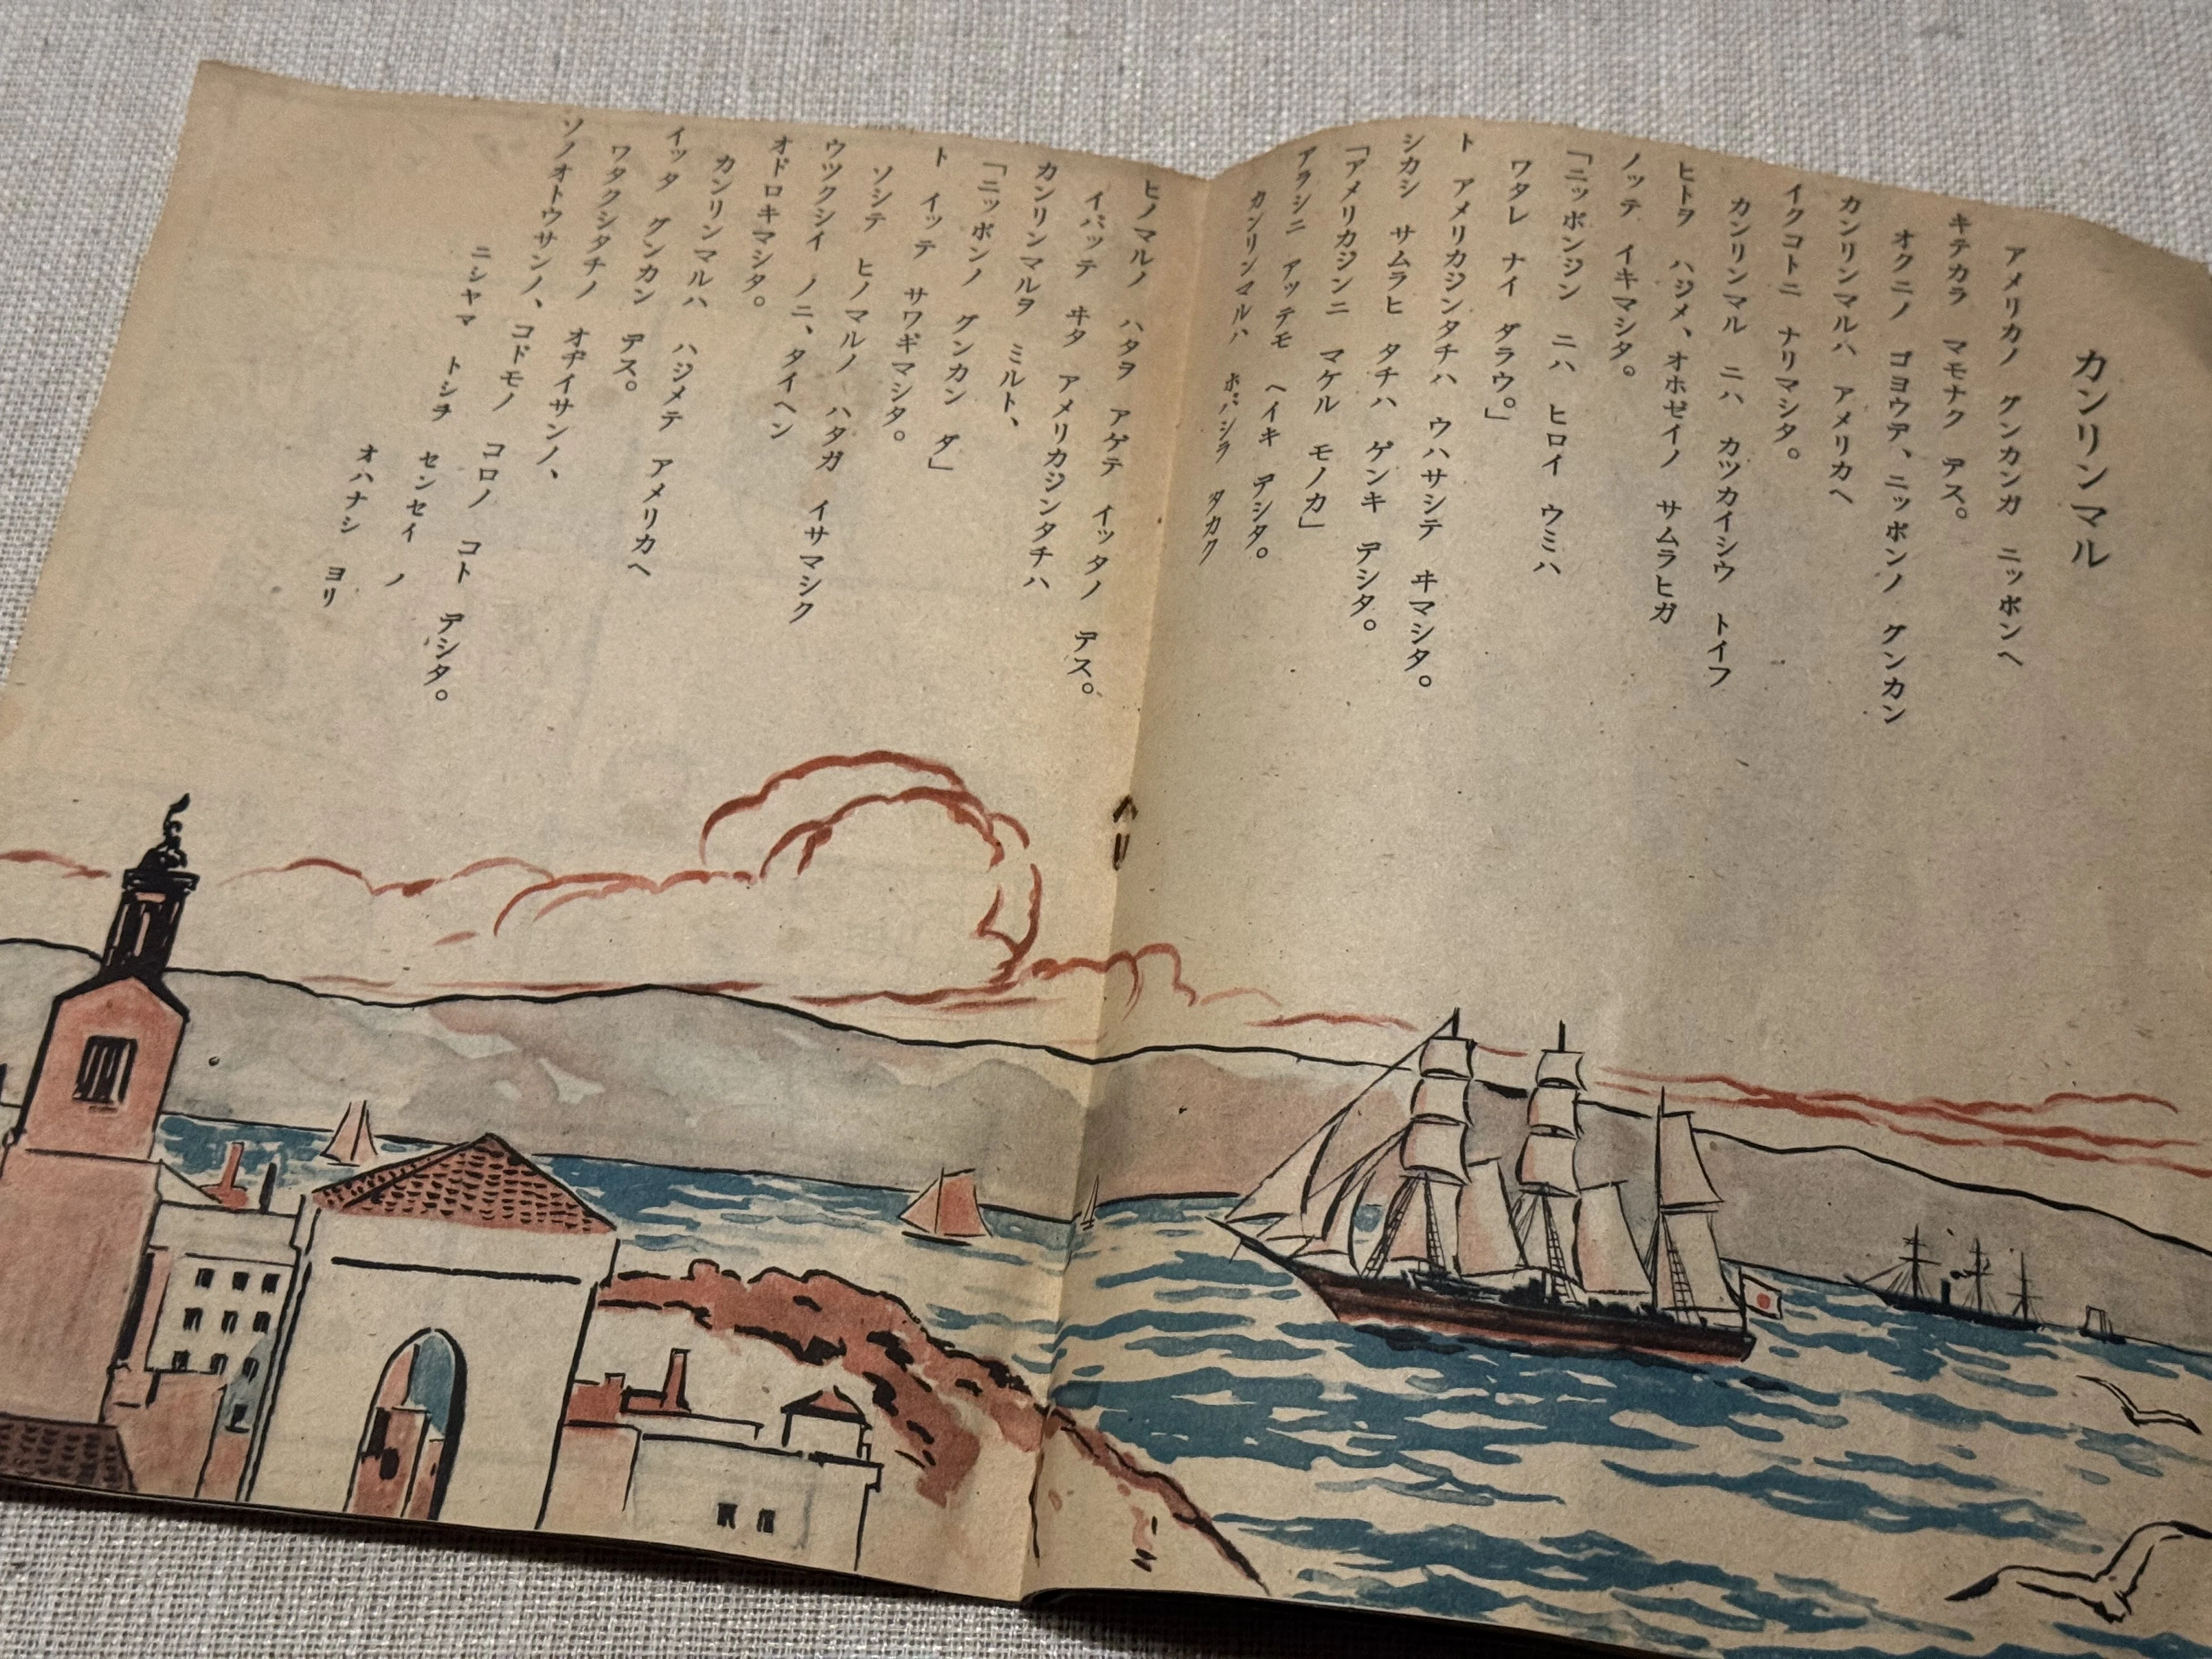 カンリンマル
アメリカノ グンカンガ ニッポンヘ
キテカラ マモナク デス。
オクニノ ゴヨウデ、ニッポンノ グンカン
カンリンマルハ アメリカヘ
イクコトニ ナリマシタ。
カンリンマル ニハ カツカイシウ トイフ
ヒトヲ ハジメ、オホゼイノ サムラヒガ
ノッテ イキマシタ。
「ニッポンジン ニハ ヒロイ ウミハ
ワタレ ナイ ダラウ。」
ト アメリカジンタチハ ウハサシテ ヰマシタ。
シカシ サムラヒ タチハ ゲンキ デシタ。
「アメリカジンニ マケル モノカ」
アラシニ アッテモ ヘイキ デシタ。
カンリンマルハ ホバシラ タカク
ヒノマルノ ハタヲ アゲテ イッタノ デス。
イバッテ ヰタ アメリカジンタチハ
カンリンマルヲ ミルト、
「ニッポンノ グンカン ダ」
ト イッテ サワギマシタ。
ソシテ ヒノマルノ ハタガ イサマシク
ウツクシイ ノニ、タイヘン
オドロキマシタ。
カンリンマルハ ハジメテ アメリカヘ
イッタ グンカン デス。
ワタクシタチノ オヂイサンノ、
ソノオトウサンノ、コドモノ コロノ コト デシタ。
ニシヤマ トシヲ センセイ ノ
オハナシ ヨリ